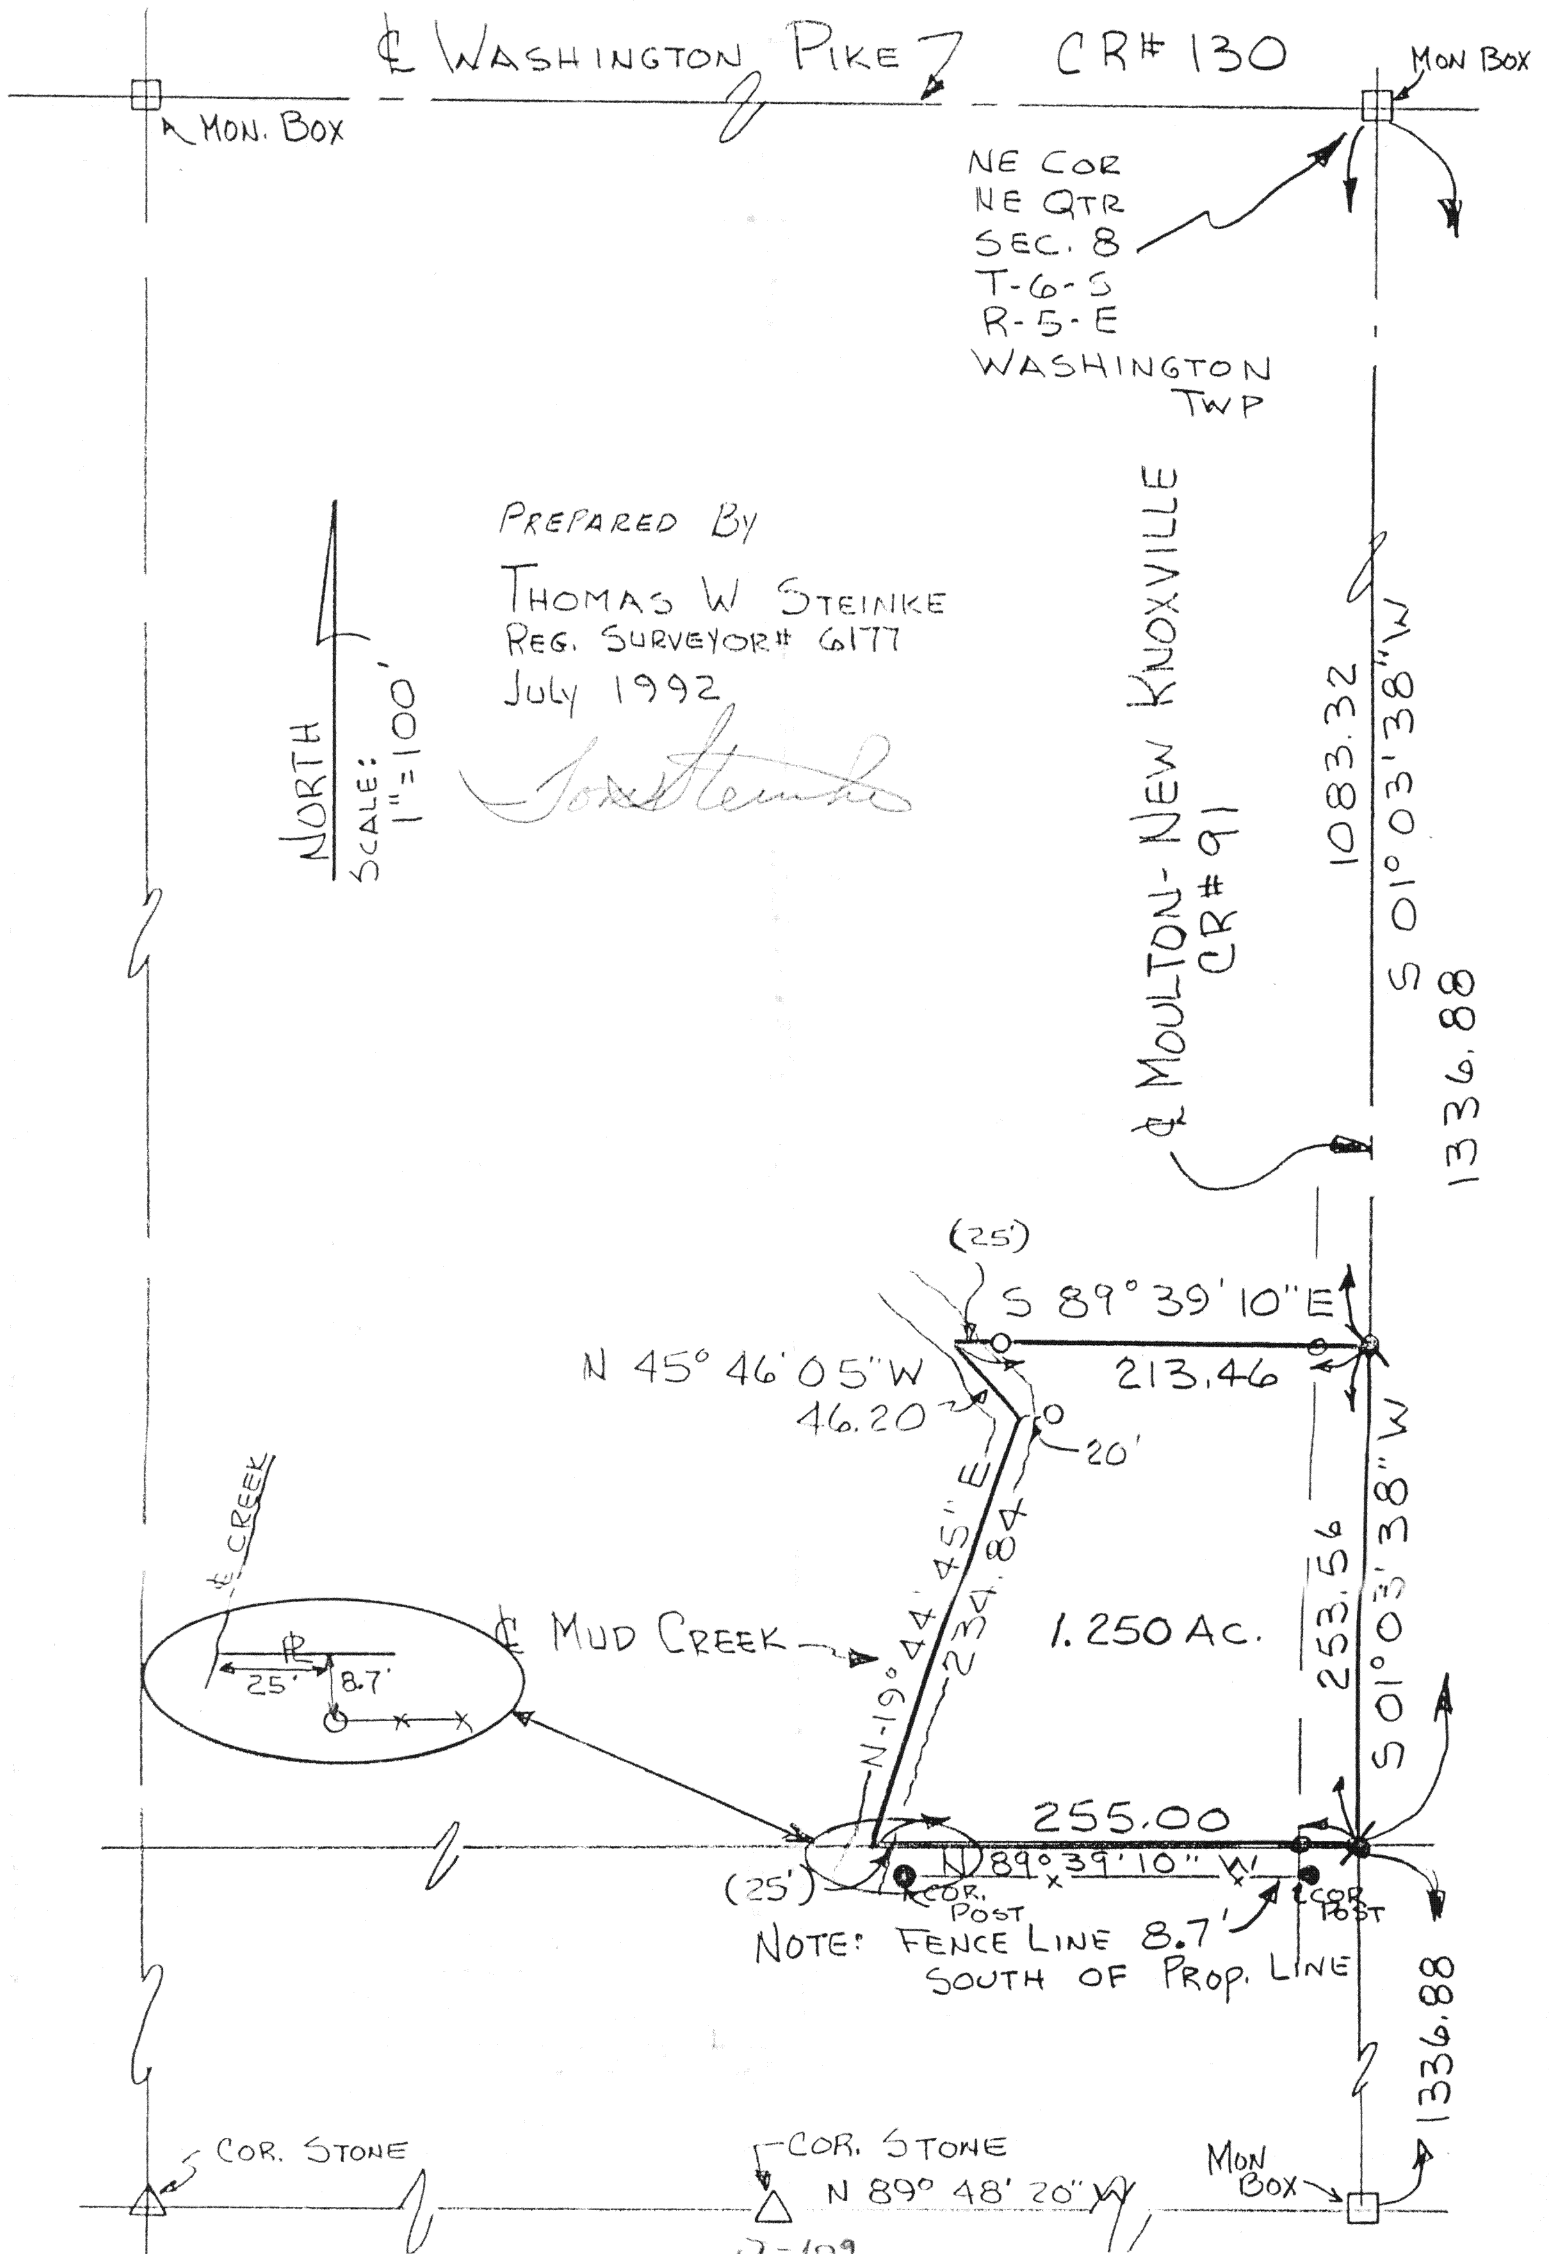 ℄ WASHINGTON PIKE CR# 130
MON BOX
MON. BOX
NE COR
NE QTR
SEC. 8
T-6-S
R-5-E
WASHINGTON
TWP
PREPARED BY
THOMAS W STEINKE
REG. SURVEYOR# 6177
JULY 1992
Tom Steinke
NORTH
SCALE:
1"=100'
℄ MOULTON-NEW KNOXVILLE
CR# 91
1083.32
S 01° 03' 38" W
1336.88
(25')
S 89° 39' 10" E
213.46
N 45° 46' 05" W
46.20
20'
N-19° 44' 45" E
234.84
℄ CREEK
℄ MUD CREEK
1.250 AC.
253.56
S 01° 03' 38" W
℄
25'
8.7'
255.00
N 89° 39' 10" W
(25')
COR.
POST
COR
POST
NOTE: FENCE LINE 8.7'
SOUTH OF PROP. LINE
1336.88
COR. STONE
COR. STONE
N 89° 48' 20" W
MON
BOX